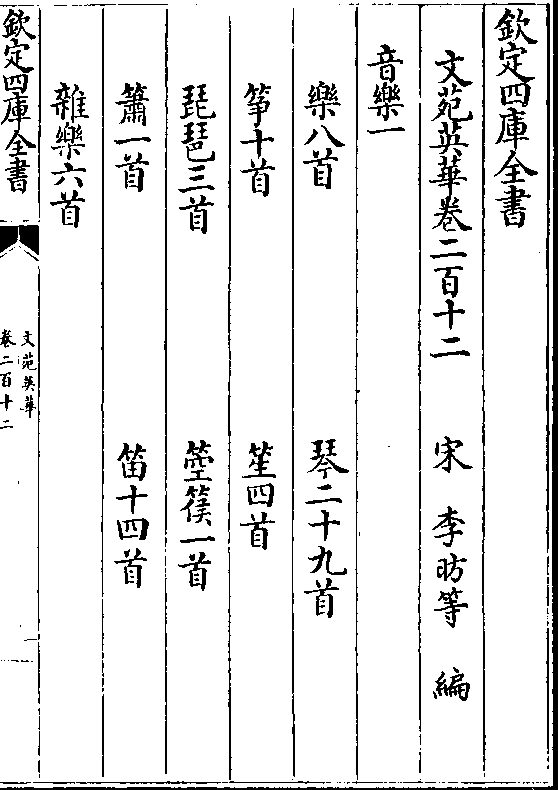 欽定四庫全書
文苑英華卷二百十二　宋　李昉等　編
音樂一
樂八首　琴二十九首
筝十首　笙四首
琵琶三首　箜篌一首
簫一首　笛十四首
雜樂六首
欽定四庫全書
文苑英華
卷二百十二